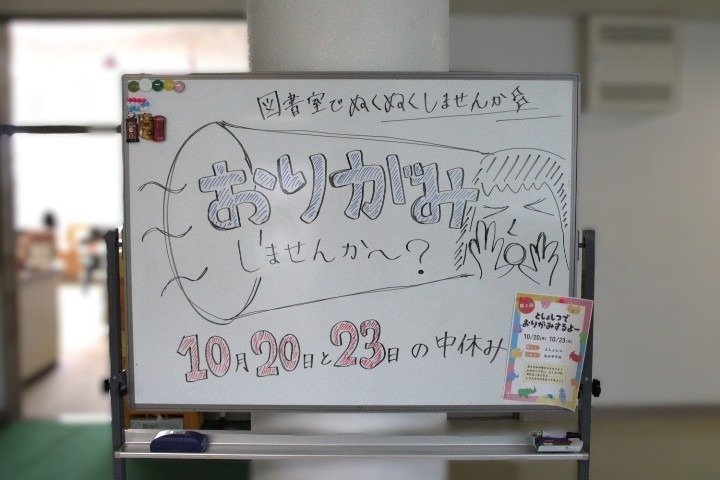 図書室でぬくぬくしませんか
おりがみ
しませんか〜?
10月20日と23日の中休み
としょしつで
おりがみするよー
10/20(月) 10/23(木)